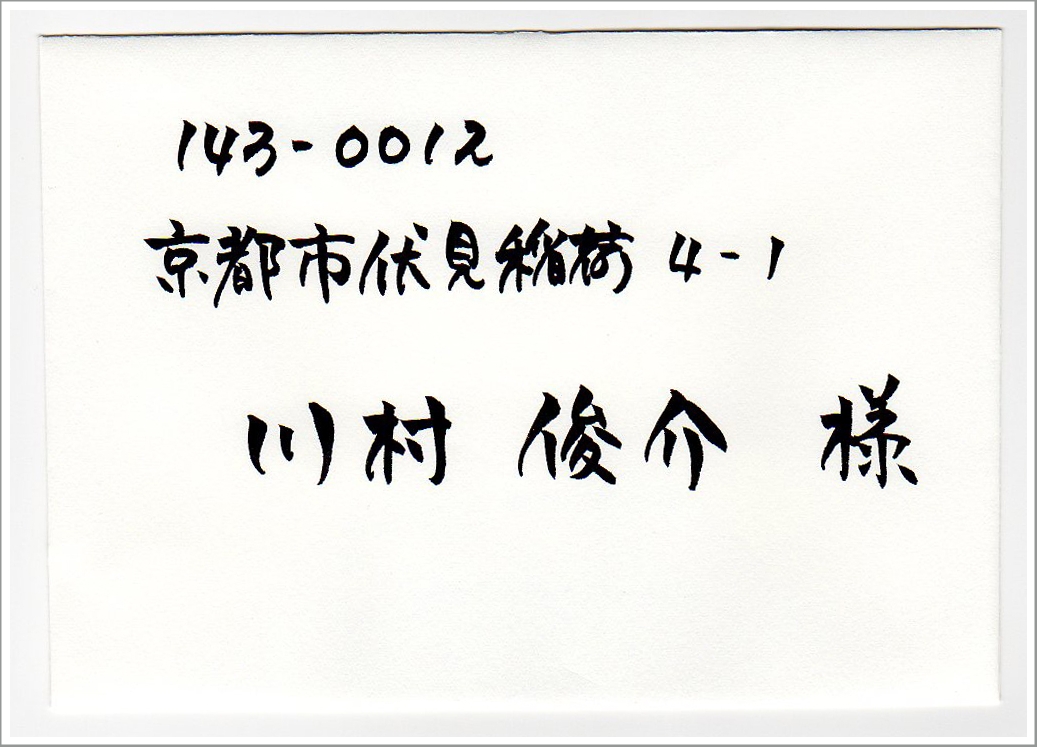 143-0012
京都市伏見稲荷 4-1
川村 俊介 様